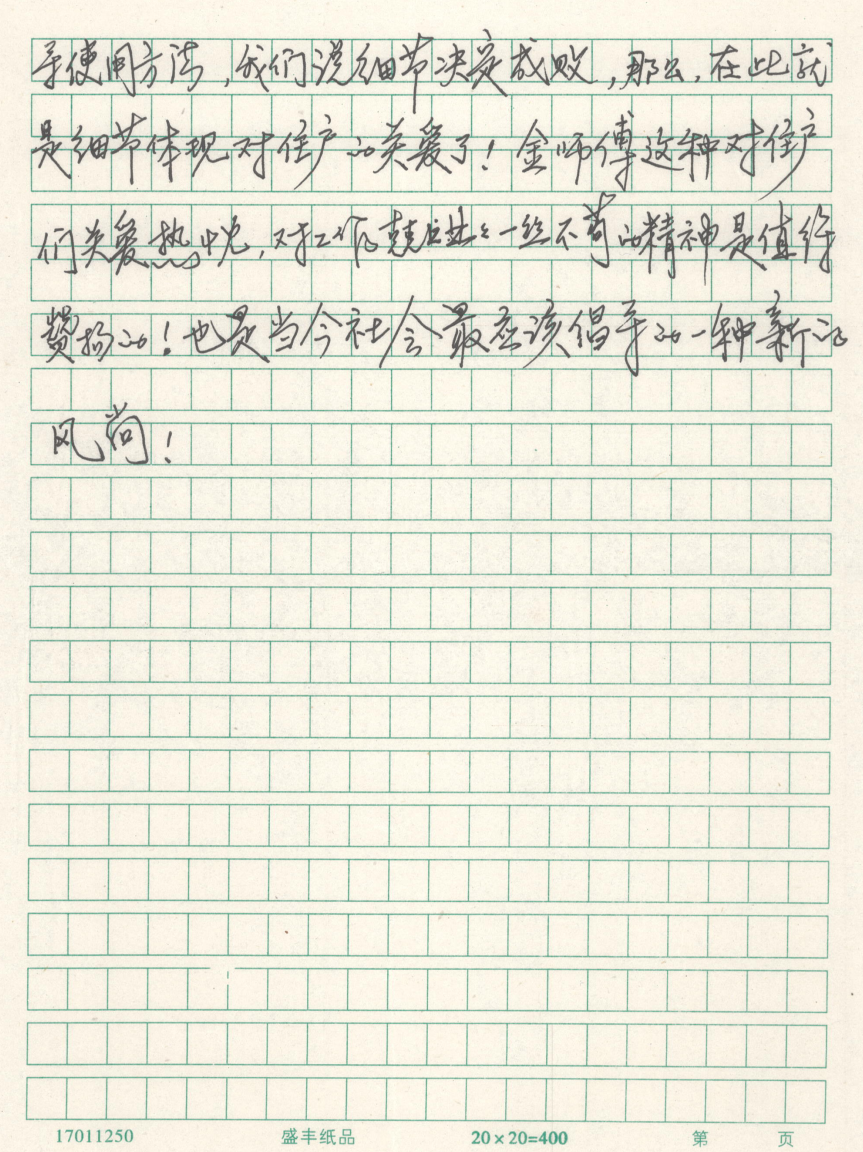 导使用方法，我们说细节决定成败，那么，在此就
是细节体现对住户的关爱了！金师傅这种对住户
们关爱热忱，对工作兢兢业业一丝不苟的精神是值得
赞扬的！也是当今社会最应该倡导的一种新的
风尚！
17011250 盛丰纸品 20×20=400 第 页